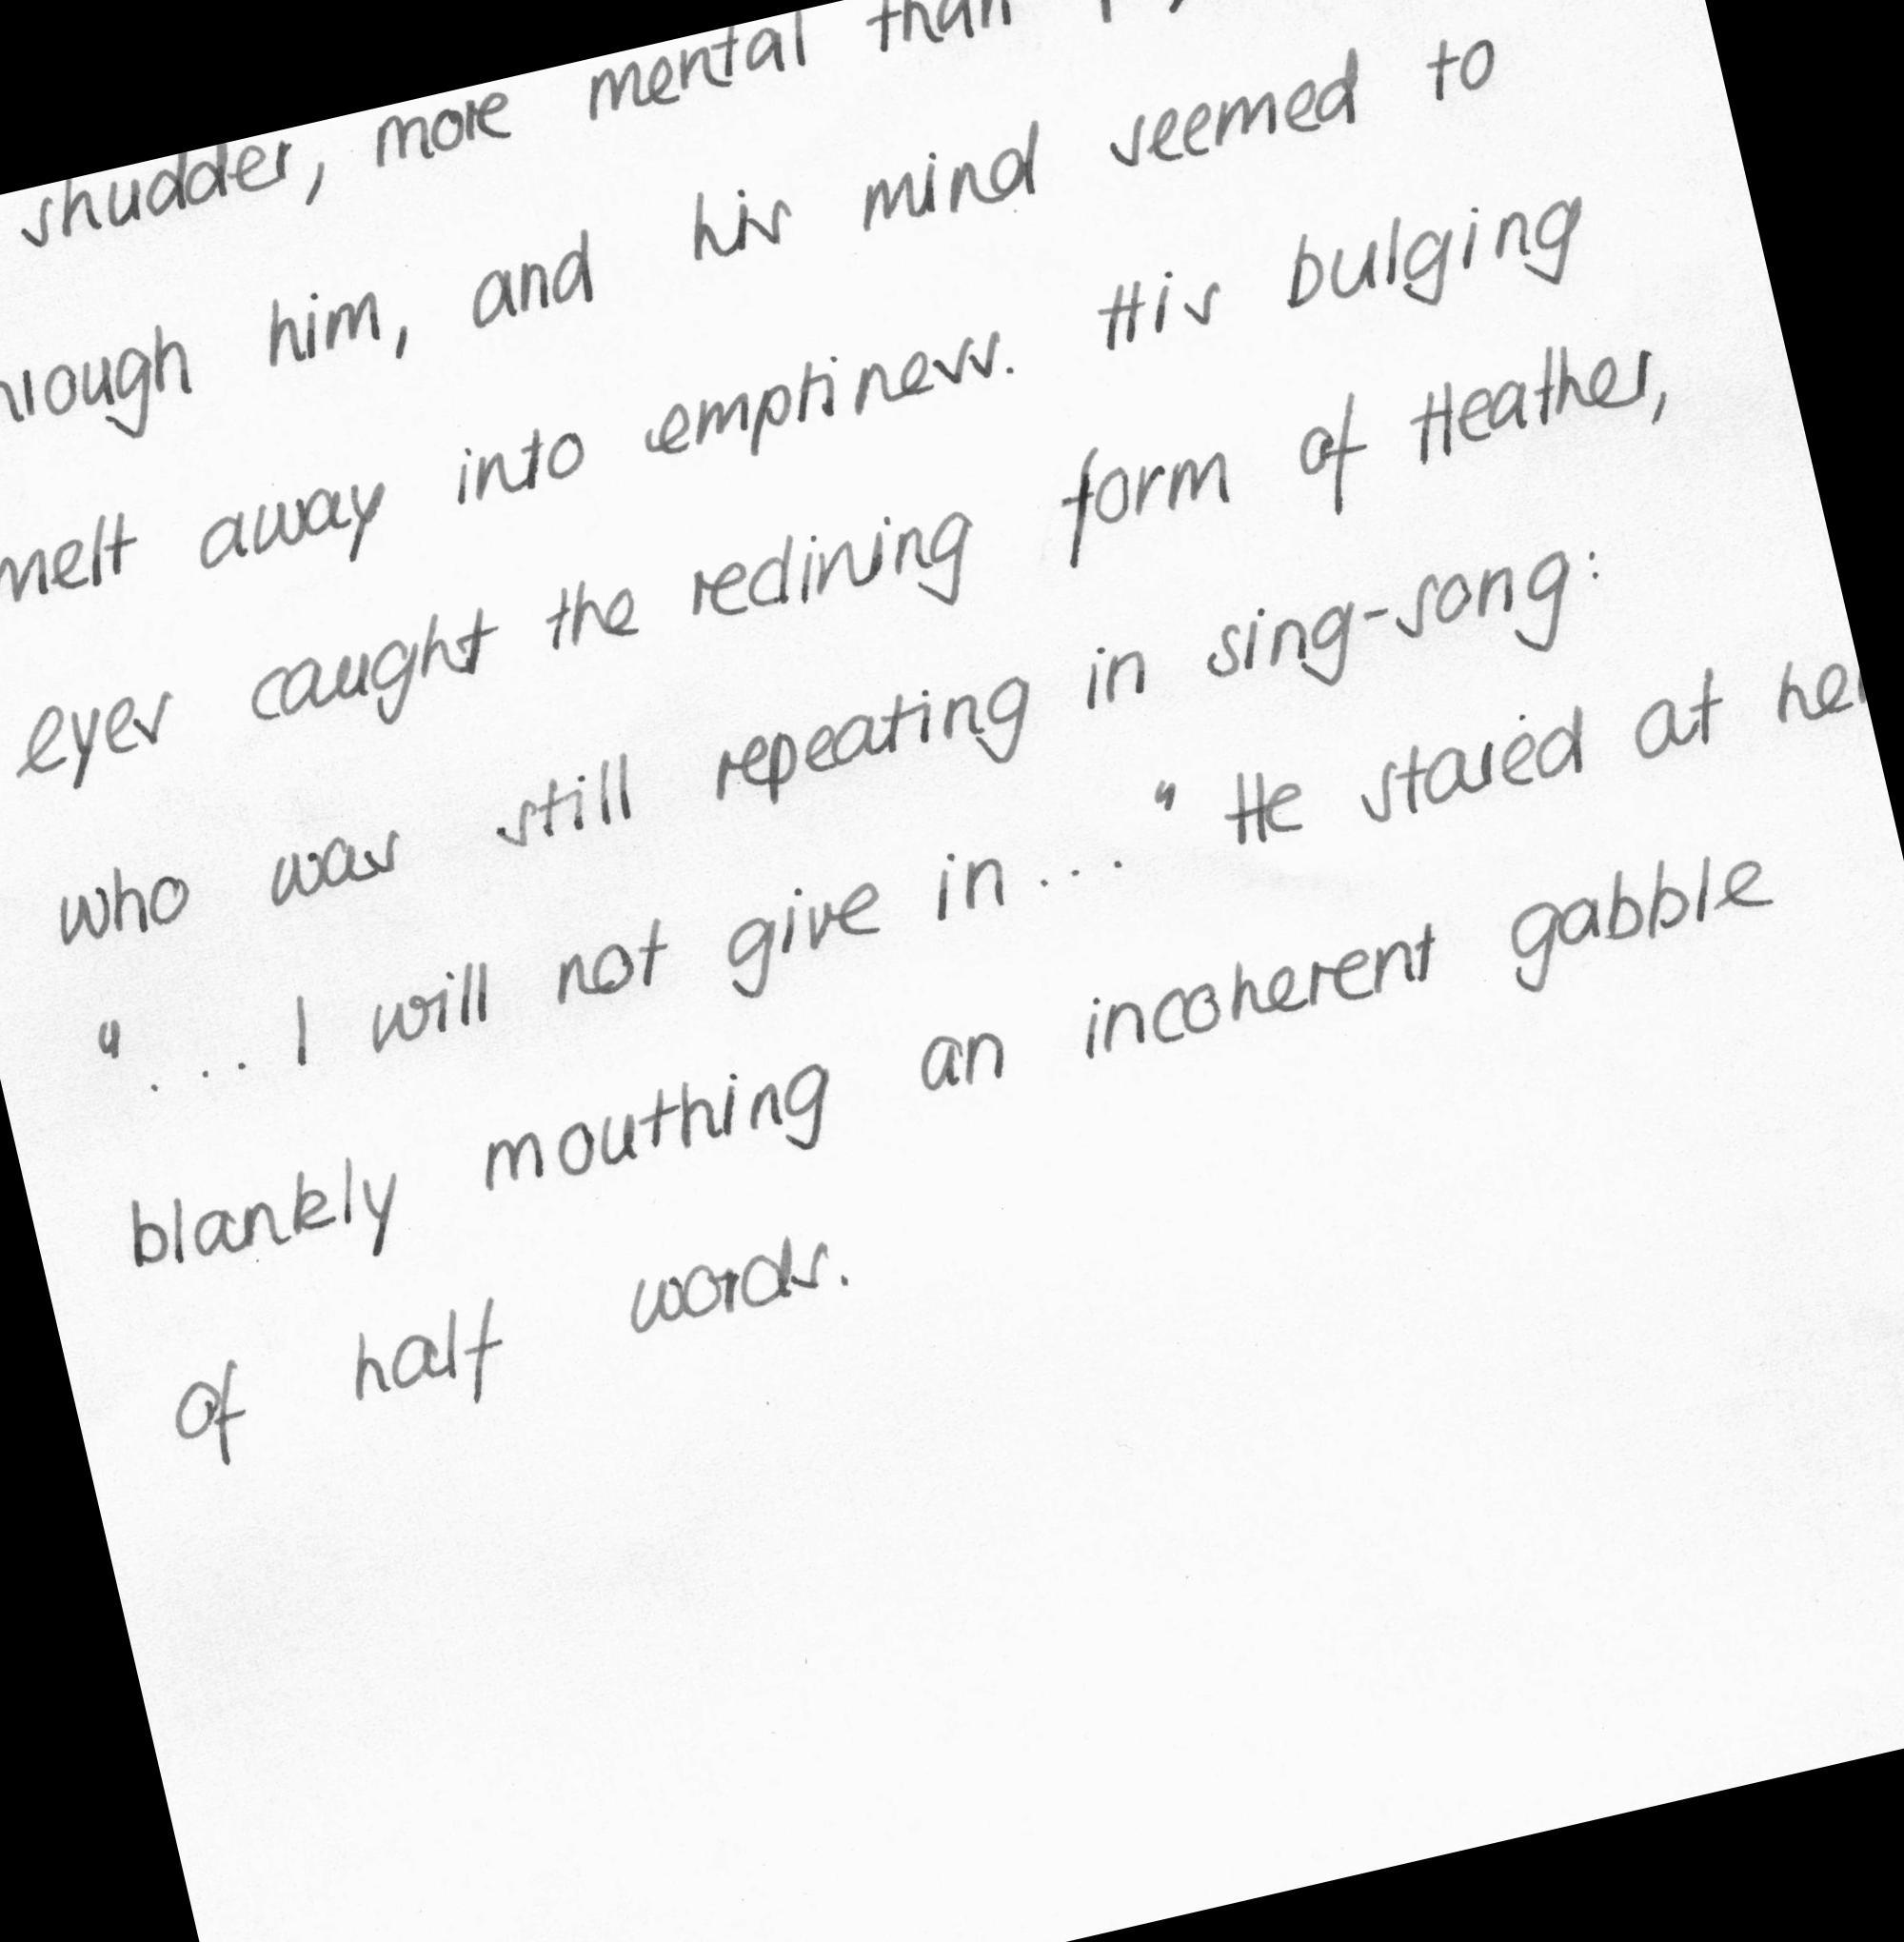 shudder, more mental than
through him, and his mind seemed to
melt away into emptiness. His bulging
eyes caught the reclining form of Heather,
who was still repeating in sing-song:
"... I will not give in ..." He stared at her
blankly mouthing an incoherent gabble
of half words.